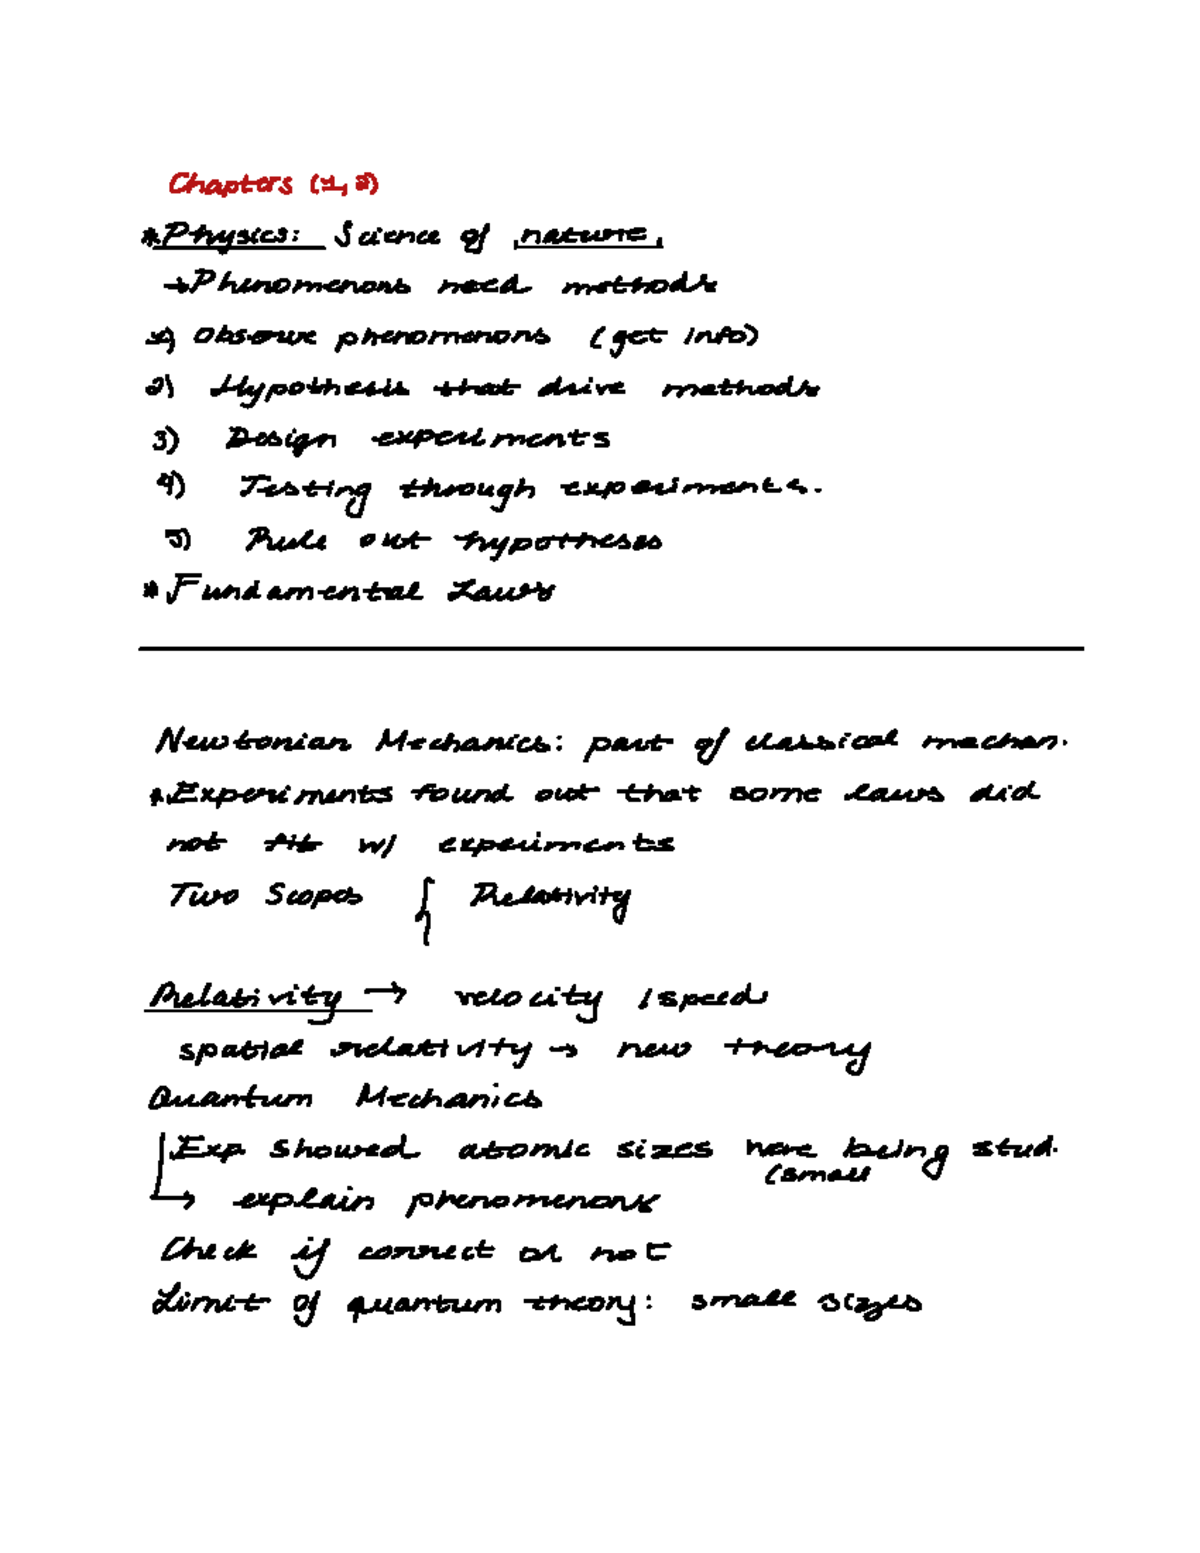 Chapters (1, 2)
* Physics: Science of nature.
→ Phenomenons need methods
1) Observe phenomenons (get info)
2) Hypothesis that drive methods
3) Design experiments
4) Testing through experiments.
5) Rule out hypotheses
* Fundamental Laws
Newtonian Mechanics: part of classical mechan.
* Experiments found out that some laws did
not fit w/ experiments
Two Scopes { Relativity
Relativity → velocity / speed
spatial relativity → new theory
Quantum Mechanics
Exp showed atomic sizes were being stud.
(small
→ explain phenomenons
Check if connect or not
Limit of quantum theory: small sizes